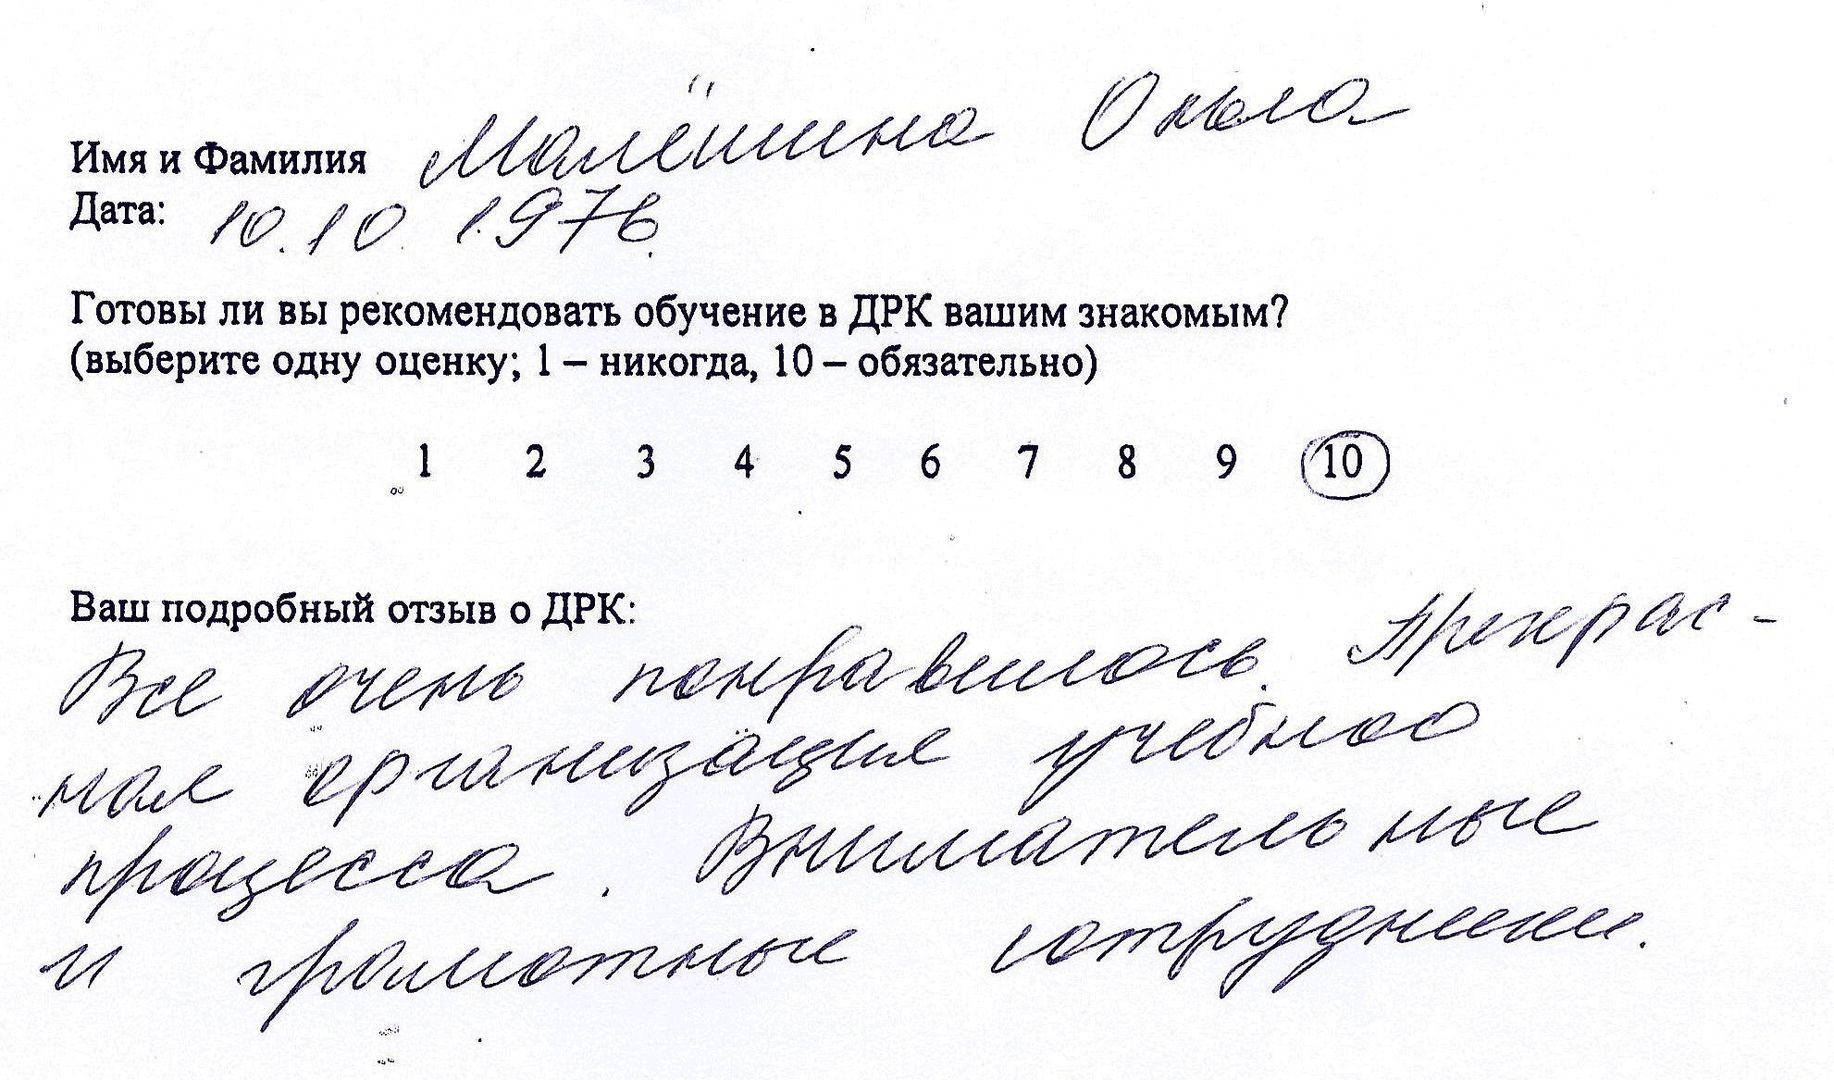 Имя и Фамилия Малёшина Ольга
Дата: 10.10.1976.
Готовы ли вы рекомендовать обучение в ДРК вашим знакомым?
(выберите одну оценку; 1 – никогда, 10 – обязательно)
1 2 3 4 5 6 7 8 9 10
Ваш подробный отзыв о ДРК:
Все очень понравилось. Прекрас-
ная организация учебного
процесса. Внимательные
и грамотные сотрудники.